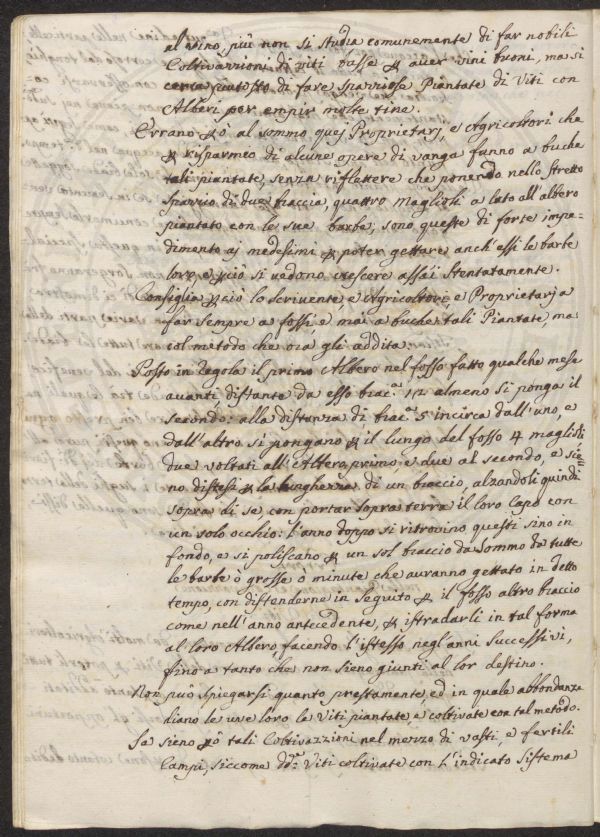 al vino, più non si studia comunemente di far nobili
Coltivazzioni di viti basse p aver vini buoni, ma si
cerca piutosto di fare spazziose Piantate di Viti con
Alberi per empir molte tine.
Errano pò al sommo quej Proprietarj, e Agricoltori che
p risparmeo di alcune opere di vanga fanno a buche
tali piantate, senza riflettere che ponendo nello stretto
spazzio di due biaccia, quattro maglioli a lato all'albero
piantato con le sue barbe, sono queste di forte impe-
dimento aj medesimi p poter gettare anch'essi le barbe
loro, e pciò si vedono crescere assai stentatamente.
Consiglia pciò lo scrivente, e Agricoltori, e Proprietarj a
far sempre a fossi, e mai a buche tali Piantate, ma
col metodo che ora gli addita.
Posto in regola il primo Albero nel fosso fatto qualche mese
avanti, distante da esso biac.a 12 almeno si ponga il
secondo: alla distanza di biac.a 5 incirca dall'uno, e
dall'altro si pongano p il lungo del fosso 4 maglioli
due voltati all'Albero primo, e due al secondo, e sie=
no distesi p la lunghezza di un biaccio, alzandoli quindi
sopra di se, con portar sopra terra il loro Capo con
un solo occhio: l'anno doppo si ritrovino questi sino in
fondo, e si poliscano p un sol biaccio da sommo da tutte
le barbe ò grosse ò minute che auranno gettato in detto
tempo, con distenderne in seguito p il fosso altro biaccio
come nell'anno antecedente, p istradarli in tal forma
al loro Albero, facendo l'istesso negl'anni successivi,
fino a tanto che non sieno giunti al lor destino.
Non può spiegarsi quanto prestamente, ed in quale abbondanza
diano le uve loro le Viti piantate, e coltivate con tal metodo.
Se sieno pò tali Coltivazzioni nel mezzo di vasti, e fertili
Campi, siccome dd.e Viti coltivate con l'indicato sistema